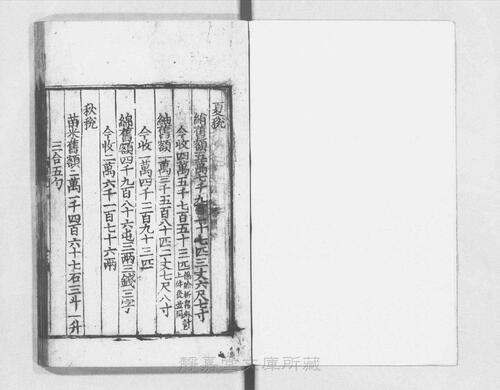 夏稅
紬舊額
千九
十七匹三丈六尺七寸
今收四萬五千七百五十三匹
紬舊額一萬三千五百八十匹二丈七尺八寸
今收一萬四千三百九十三匹
綿舊額四千九百八十六屯三兩三錢三字
今收二萬六千一百七十六兩
秋稅
苗米舊額二萬一千四百六十七石三斗一升
三合五勺
靜嘉堂文庫所藏